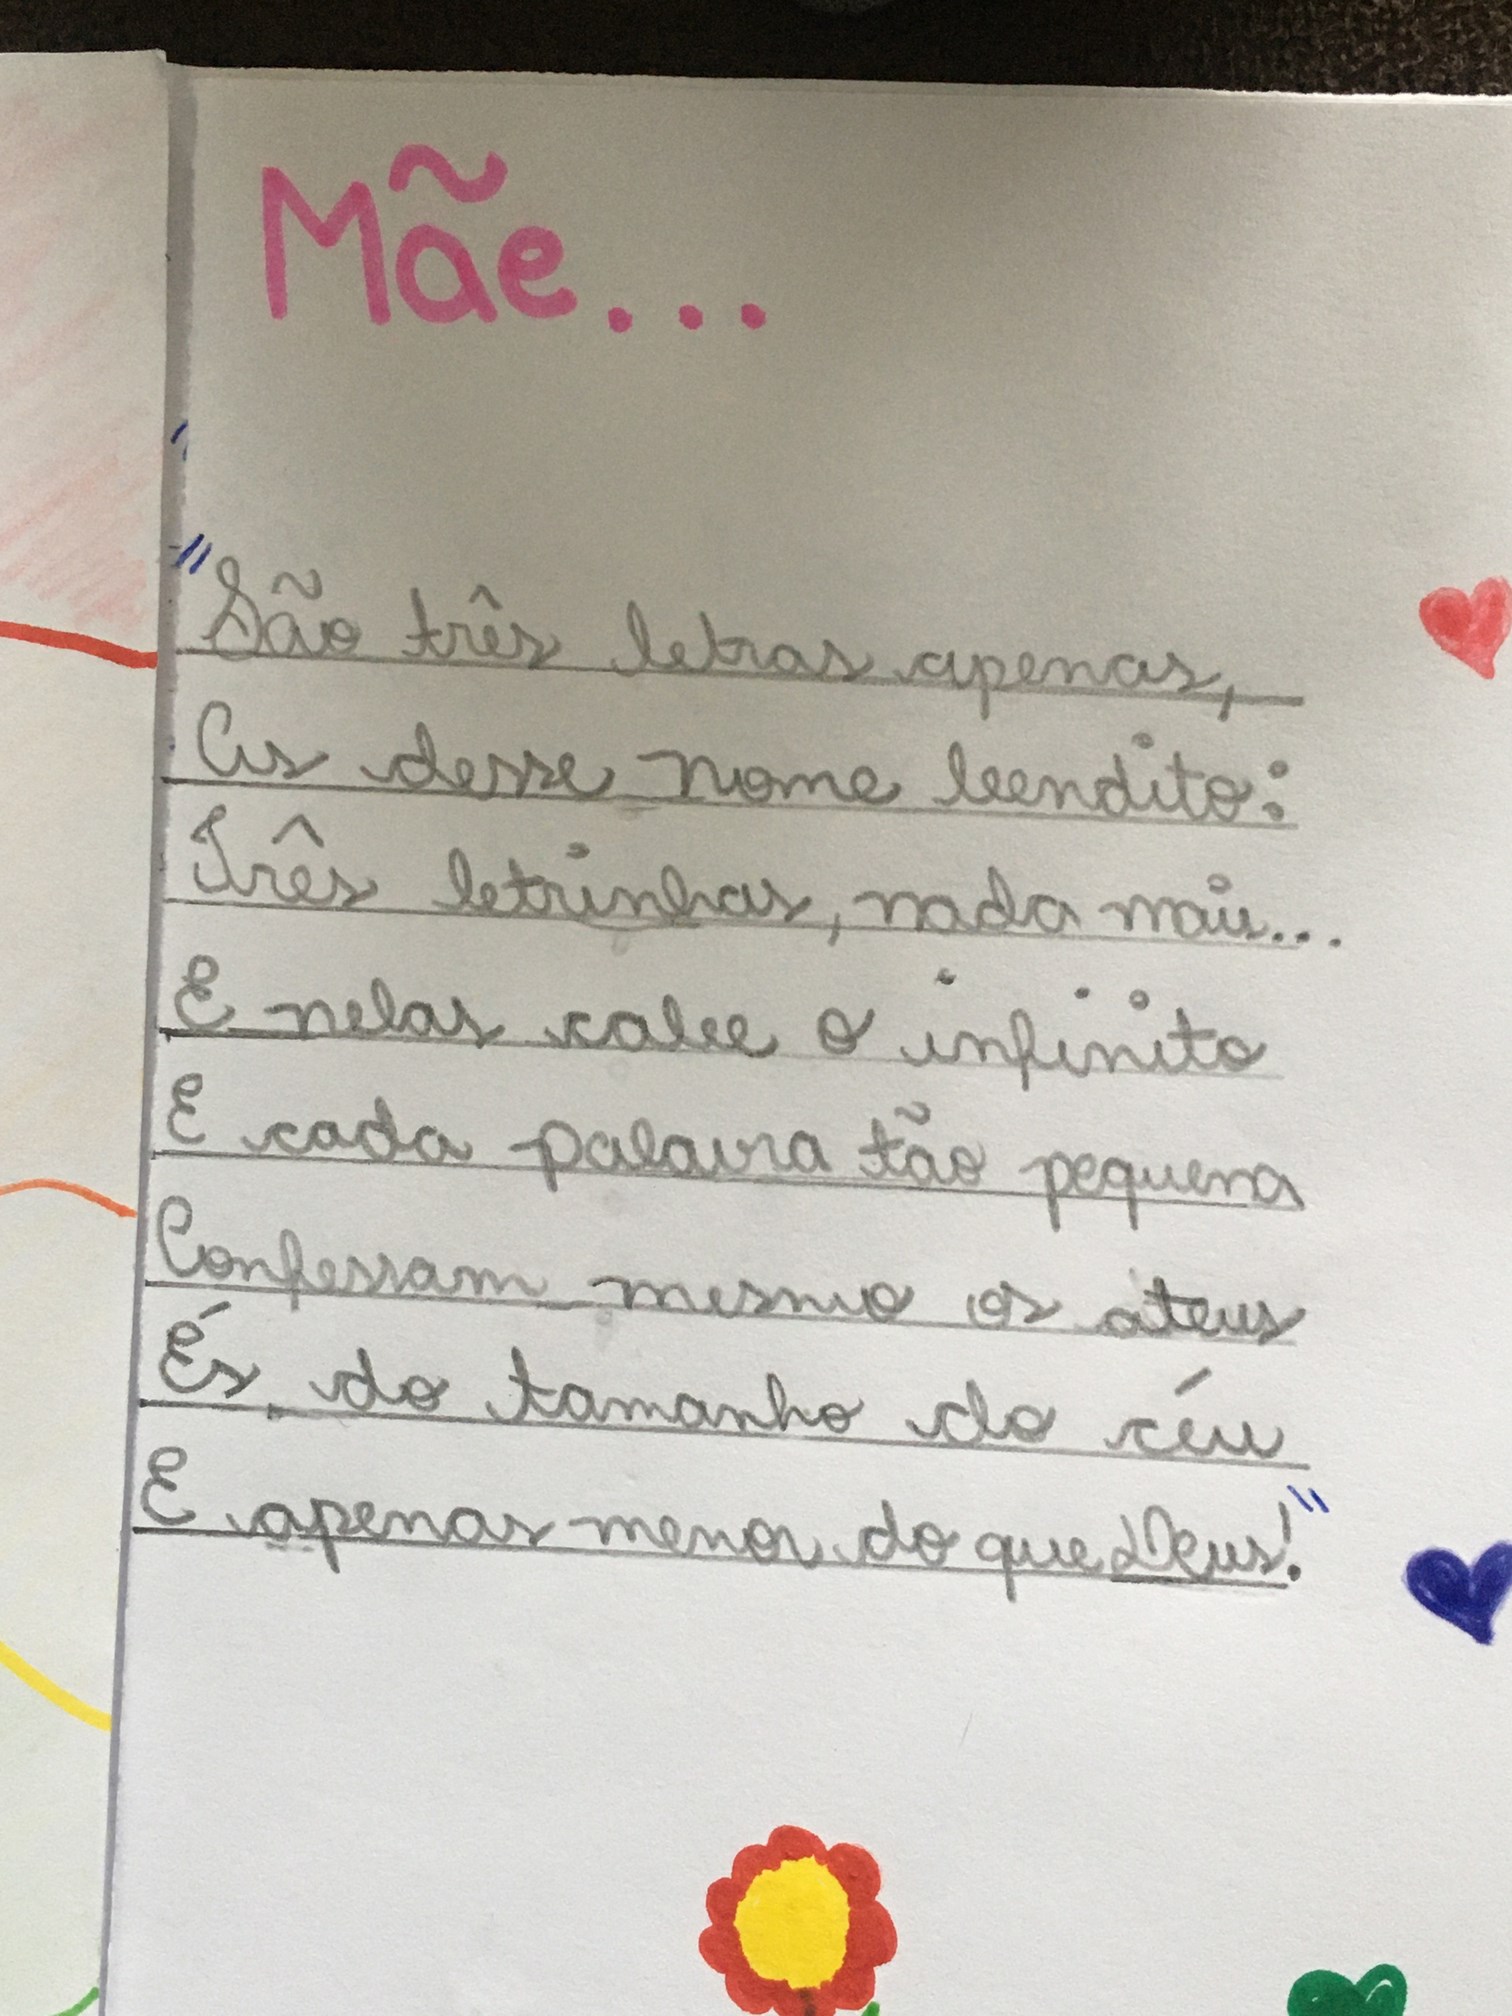 Mãe...
"São três letras apenas,
As desse nome bendito:
Três letrinhas, nada mais...
E nelas cabe o infinito
E cada palavra tão pequena
Confessam mesmo os ateus
És do tamanho do céu
E apenas menor do que Deus!"